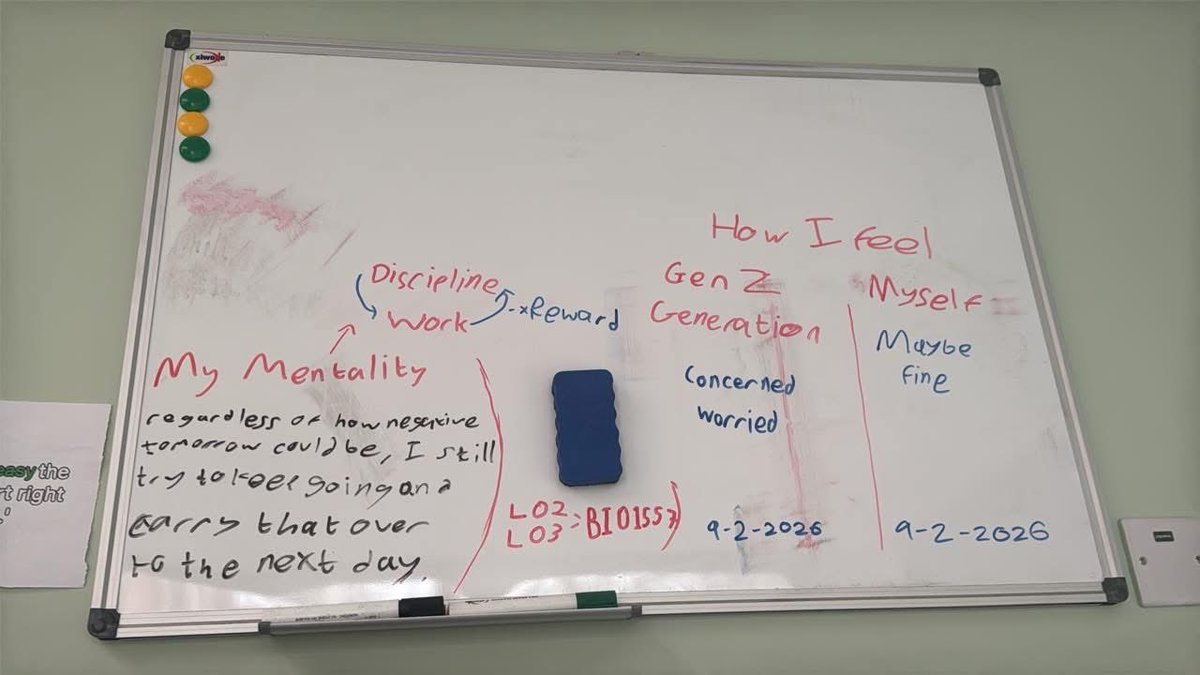 xiwode
How I feel
Gen Z
Generation
Myself
Concerned
worried
Maybe
fine
9-2-2026
9-2-2026
Discipline
Work
Reward
My Mentality
regardless of how negative
tomorrow could be, I still
try to keep going and
carry that over
to the next day.
LO2
LO3 : BIO1557
easy the
rt right
.'